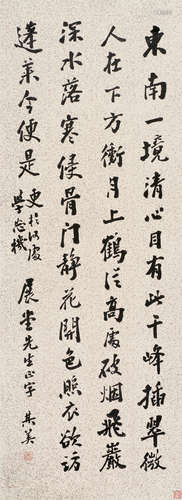 東南一境清心目有此千峰插翠微
人在下方衝月上鶴從高處破烟飛巖
深水落寒侵骨门靜花開色照衣欲訪
蓬萊今便是更於何處學忘機
展堂先生正字 其美